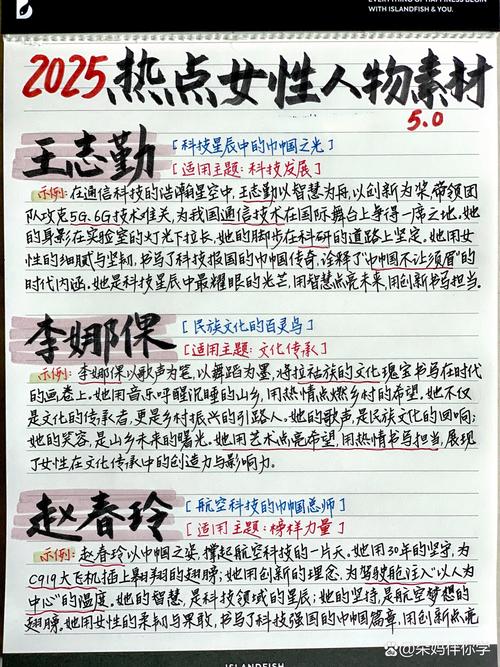 EVERYTHING OF HAPPINESS BEGIN
WITH ISLANDFISH & YOU.
2025热点女性人物素材
5.0
王志勤
[科技星辰中的巾帼之光]
[适用主题:科技发展]
示例:在通信科技的浩瀚星空中,王志勤以智慧为舟,以创新为桨,带领团
队攻克5G、6G技术难关,为我国通信技术在国际舞台上争得一席之地。她
的身影在实验室的灯光下拉长,她的脚步在科研的道路上坚定。她用女
性的细腻与坚韧,书写了科技报国的巾帼传奇,诠释了“巾帼不让须眉”的
时代内涵。她是科技星辰中最耀眼的光芒,用智慧点亮未来,用创新书写担当。
李娜倮
[民族文化的百灵鸟]
[适用主题:文化传承]
示例:李娜倮以歌声为笔,以舞蹈为墨,将拉祜族的文化瑰宝书写在时代
的画卷上。她用音乐呼醒沉睡的山乡,用热情点燃乡村的希望。她不仅
是文化的传承者,更是乡村振兴的引路人。她的歌声,是民族文化的回响;
她的笑容,是山乡未来的曙光。她用艺术点亮希望,用热情书写担当,展现
了女性在文化传承中的创造力与影响力。
赵春玲
[航空科技的巾帼总师]
[适用主题:榜样力量]
示例:赵春玲以巾帼之姿,撑起航空科技的一片天。她用30年的坚守,为
C919大飞机插上翱翔的翅膀;她用创新的理念,为驾驶舱注入“以人为
中心”的温度。她的智慧,是科技领域的星辰;她的坚持,是航空梦想的
翅膀。她用女性的柔韧与果敢,书写了科技强国的巾帼篇章,用创新点亮
ISLANDFISH
@柴妈伴你学